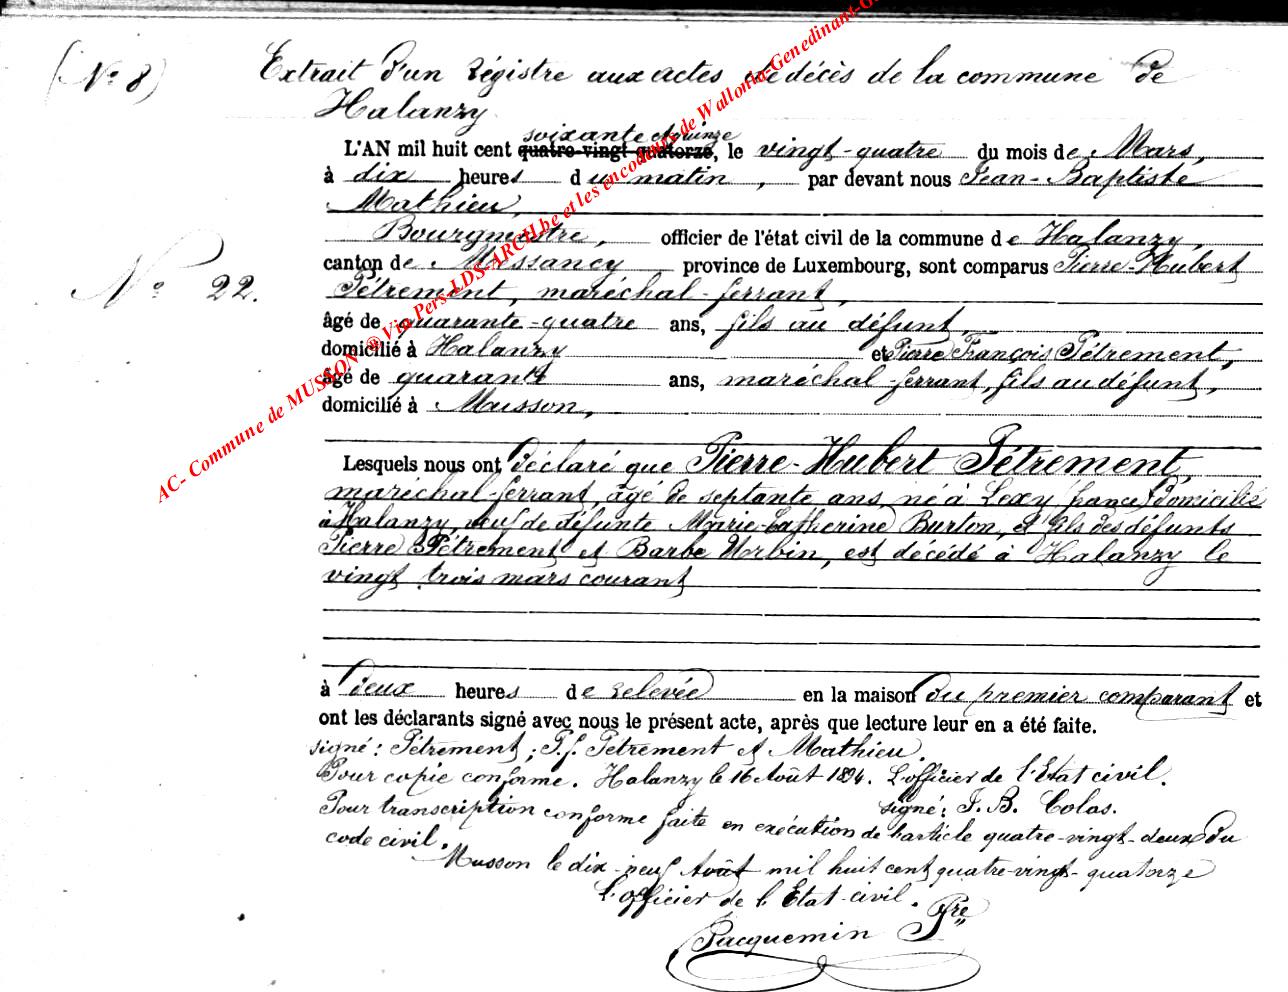 (N° 8)
Extrait d'un Régistre aux actes de décès de la commune de
Halanzy
soixante et quinze
L'AN mil huit cent quatre-vingt quatorze, le vingt-quatre du mois de Mars,
à dix heures du matin, par devant nous Jean-Baptiste
Mathieu,
Bourgmestre, officier de l'état civil de la commune de Halanzy,
canton de Messancy province de Luxembourg, sont comparus Pierre-Hubert
N° 22.
Pétrement, maréchal-ferrant,
âgé de quarante-quatre ans, fils au défunt,
domicilié à Halanzy et Pierre François Pétrement,
âgé de quarante ans, maréchal-ferrant, fils au défunt,
domicilié à Musson,
Lesquels nous ont déclaré que Pierre-Hubert Pétrement,
maréchal-ferrant, âgé de septante ans, né à Lexy (france) domicilié
à Halanzy, veuf de défunte Marie-Catherine Burton, et fils des défunts
Pierre Pétrement et Barbe Urbin, est décédé à Halanzy le
vingt trois mars courant
à deux heures de relevée en la maison du premier comparant et
ont les déclarants signé avec nous le présent acte, après que lecture leur en a été faite.
signé: Pétrement; P.f. Pétrement et Mathieu.
Pour copie conforme. Halanzy le 16 Août 1894. L'officier de l'Etat civil.
signé: J. B. Colas.
Pour transcription conforme faite en exécution de l'article quatre-vingt-deux du
code civil.
Musson le dix-neuf Août mil huit cent quatre-vingt-quatorze
L'officier de l'Etat-civil.
Jacquemin Pre
AC- Commune de MUSSON ® Via Pers-LDS-ARCH.be et les encodeurs de Wallonia-Genedinans-G